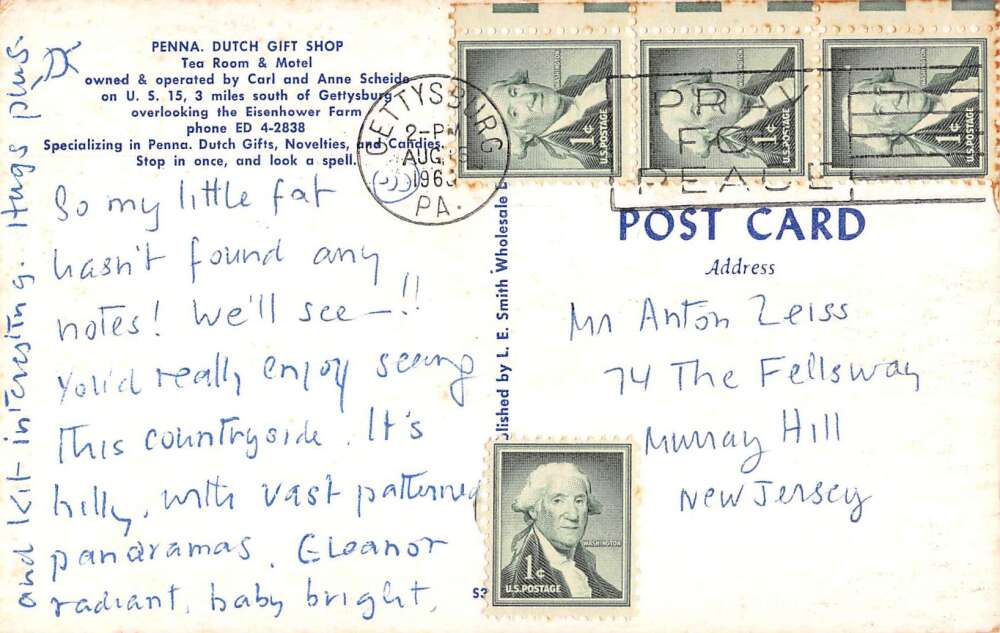 PENNA. DUTCH GIFT SHOP
Tea Room & Motel
owned & operated by Carl and Anne Scheide
on U. S. 15, 3 miles south of Gettysburg
overlooking the Eisenhower Farm
phone ED 4-2838
Specializing in Penna. Dutch Gifts, Novelties, and Candies.
Stop in once, and look a spell.
So my little fat
hasn't found any
notes! We'll see—!!
You'd really enjoy seeing
this countryside. It's
hilly, with vast patterned
panaramas. Eleanor
radiant, baby bright,
and Kit interesting. Hugs plus
GETTYSBURG
2-PM
AUG
1963
PA.
PRAY
FOR
PEACE
WASHINGTON
1¢
U.S. POSTAGE
WASHINGTON
1¢
U.S. POSTAGE
WASHINGTON
1¢
U.S. POSTAGE
blished by L. E. Smith Wholesale
POST CARD
Address
Mr Anton Zeiss
74 The Fellsway
Murray Hill
New Jersey
WASHINGTON
1¢
U.S. POSTAGE